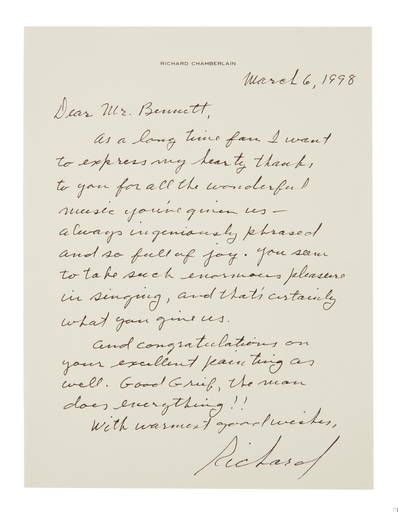 RICHARD CHAMBERLAIN
March 6, 1998
Dear Mr. Bennett,
As a long time fan I want
to express my hearty thanks
to you for all the wonderful
music you've given us —
always ingeniously phrased
and so full of joy. You seem
to take such enormous pleasure
in singing, and that's certainly
what you give us.
And congratulations on
your excellent painting as
well. Good Grief, the man
does everything!!
With warmest good wishes,
Richard